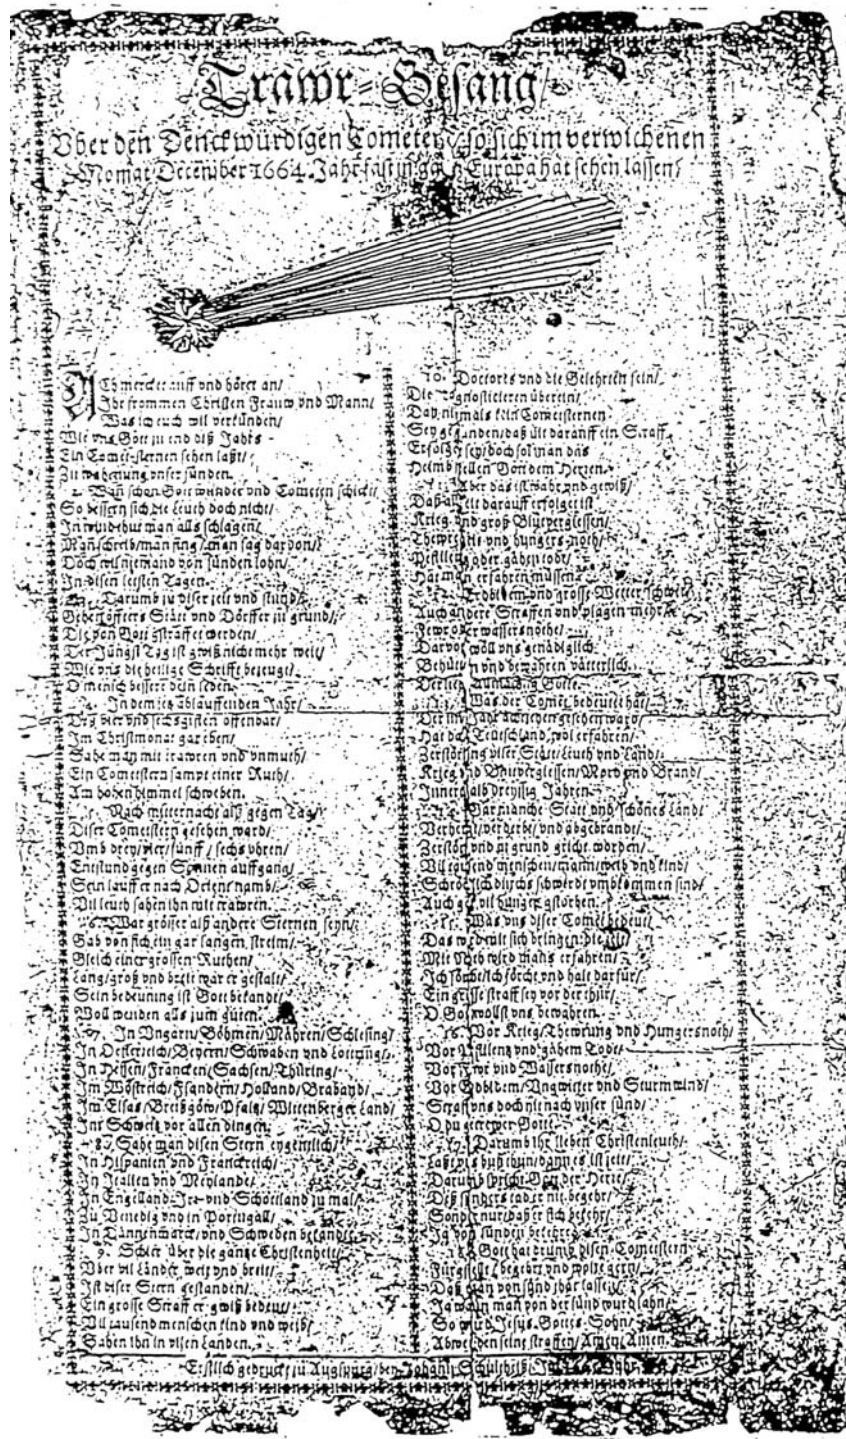 Trawr-Gesang/
Vber den Denckwürdigen Cometen/ so sich im verwichenen
Monat December 1664. Jahr fast in gantz Europa hat sehen lassen/
ACh mercket auff vnd höret an/
Ihr frommen Christen Frauw vnd Mann/
Was ich euch wil verkünden/
Wie vns Gott zu end diß Jahrs
Ein Comet-sternen sehen laßt/
Zu wahrnung vnser sünden.
2. Wañ schon Gott wunder vnd Cometen schickt/
So bessern sich die Leuth doch nicht/
In wind thut man alls schlagen/
Mañ schreib/ man sing/ man sag darvon/
Doch will niemand von sünden lohn/
In disen letsten Tagen.
3. Darumb zu diser zeit vnd stund/
Gehet öffters Stätt vnd Dörffer zu grund/
Die von Gott gsträffet werden/
Der Jüngst Tag ist gwiß nicht mehr weit/
Wie vns die heilige Schrifft bezeugt/
O mensch bessere dein leben.
4. In dem jetz ablauffenden Jahr/
Deß vier vnd sechsgisten offenbar/
Im Christmonat gar eben/
Sahe man mit trawren vnd vnmuth/
Ein Cometstern sampt einer Ruth/
Am hohen himmel schweben.
5. Nach mitternacht alß gegen Tag/
Diser Cometstern gesehen ward/
Vmb drey/ vier/ fünff/ sechs vhren/
Entstund gegen Sonnen auffgang/
Sein lauff er nach Orient namb/
Vil leuth sahen ihn mit trawren.
6. War grösser alß andere Sternen seyn/
Gab von sich ein gar langen streim/
Gleich einer grossen Ruthen/
Lang/ groß vnd breit war er gestalt/
Sein bedeutung ist Gott bekandt/
Woll wenden alls zum guten.
7. In Vngarn/ Böhmen/ Mähren/ Schlesing/
In Oesterreich/ Beyern/ Schwaben vnd Lottring/
In Hessen/ Francken/ Sachsen/ Thüring/
Im Wöstrich/ Flandern/ Holland/ Braband/
Im Elsas/ Breißgöw/ Pfaltz/ Wirtenberger Land/
Inn Schweitz vor allen dingen.
8. Sahe man disen Stern eygentlich/
In Hispanien vnd Franckreich/
In Itallen vnd Meylande/
In Engelland Irr- vnd Schottland zu mal/
Zu Venedig vnd in Portugall/
In Dännenmarck/ vnd Schweden bekandt.
9. Schier über die gantze Christenheit/
Vber vil Länder weit vnd breit/
Ist diser Stern gestanden/
Ein grosse Straff er gwiß bedeut/
Vil tausend menschen kind vnd weib/
Sahen ihn in vilen Landen.
10. Doctorts vnd die Gelehrten fein/
Die Prognosticieren überein/
Daß niemals kein Cometsternen
Sey gestanden/ daß nit darauff ein Straff
Erfolget sey/ doch sol man das
Heimb stellen Gott dem Herren.
11. Aber das ist wahr vnd gewiß/
Daß alle zeit darauff erfolget ist
Krieg vnd groß Blutvergiessen/
Thewre zeit vnd hungers-noth/
Pestilentz oder gähen todt/
Hat man erfahren müssen.
12. Erdbidem vnd grosse Wetter schwer/
Auch andere Straffen vnd plagen mehr/
Fewr oder wassersnothe/
Darvor wöll vns genädiglich
Behüten vnd bewahren vätterlich/
Der lieb Allmächtig Gotte.
13. Was der Comet bedeutet hat/
Der im Jahr achtzehen gesehen ward/
Hat das Teutschland wol erfahren/
Zerstörung viler Stätt/ Leuth vnd Land/
Krieg vnd Blutvergiessen/ Mord vnd Brand/
Innerthalb dreyssig Jahren.
14. Gar manche Statt vnd schönes Land/
Verhergt/ verderbt/ vnd abgebrandt/
Zerstört vnd zu grund gricht worden/
Vil tausend menschen/ mann/ weib vnd kind/
Schröcklich durchs schwerdt vmbkommen sind/
Auch gar vil hunger gstorben.
15. Was vns diser Comet bedeut/
Das wird mit sich bringen die zeit/
Mit der wird mans erfahren/
Ich sorge/ ich förchte vnd halt darfür/
Ein grosse straff sey vor der thür/
O Gott wollst vns bewahren.
16. Vor Krieg/ Thewrung vnd Hungersnoth/
Vor Pestilentz vnd gähem Todt/
Vor Fewr vnd Wassersnothe/
Vor Erdbidem/ Vngwitter vnd Sturmwind/
Straff vns doch nit nach vnser sünd/
O du getrewer Gotte.
17. Darumb ihr lieben Christenleuth/
Laßt vns buß thun/ dann es ist zeit/
Darumb spricht Gott der Herre/
Deß sünders tod er nit begehr/
Sonder nur/ daß er sich bekehr/
Vnd von sünden bekehre.
18. Gott hat drumb disen Cometstern
Fürgstellt/ begehrt vnd wolte gern/
Daß man von sünd thät lassen/
Ja wann man von der sünd wurd lahn/
So wird Jesus Gottes Sohn/
Abwenden seine straffen/ Amen/ Amen.
Erstlich gedruckt zu Augspurg/ bey Johann Schultheiß/